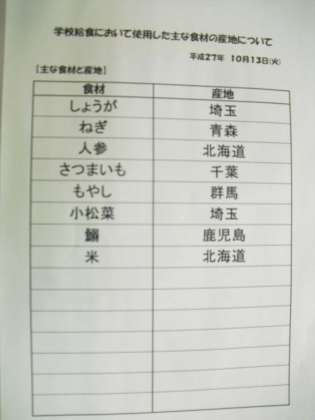 学校給食において使用した主な食材の産地について
平成27年 10月13日(火)
【主な食材と産地】
食材 産地
しょうが 埼玉
ねぎ 青森
人参 北海道
さつまいも 千葉
もやし 群馬
小松菜 埼玉
鰤 鹿児島
米 北海道